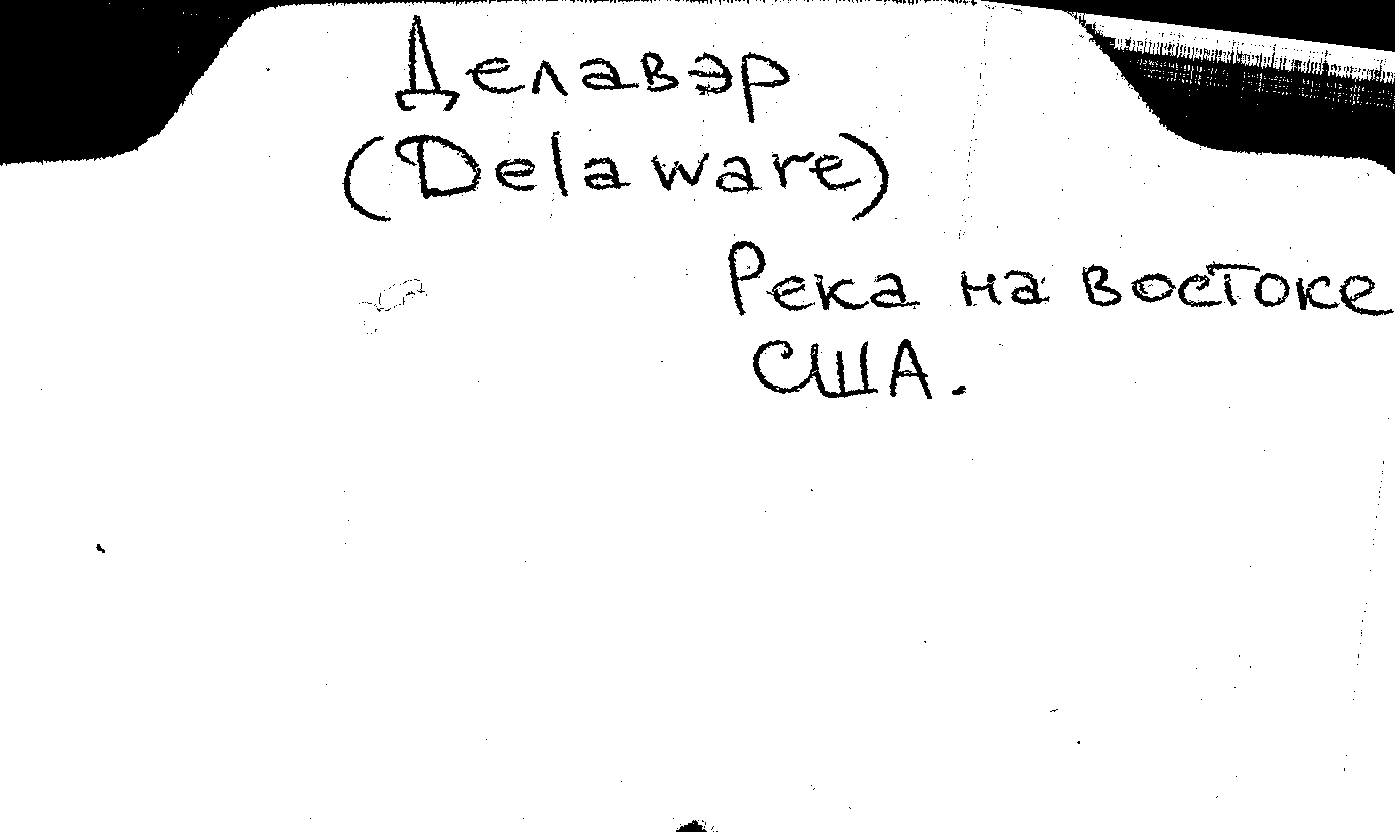 Делавэр
(Delaware)
Река на востоке
США.